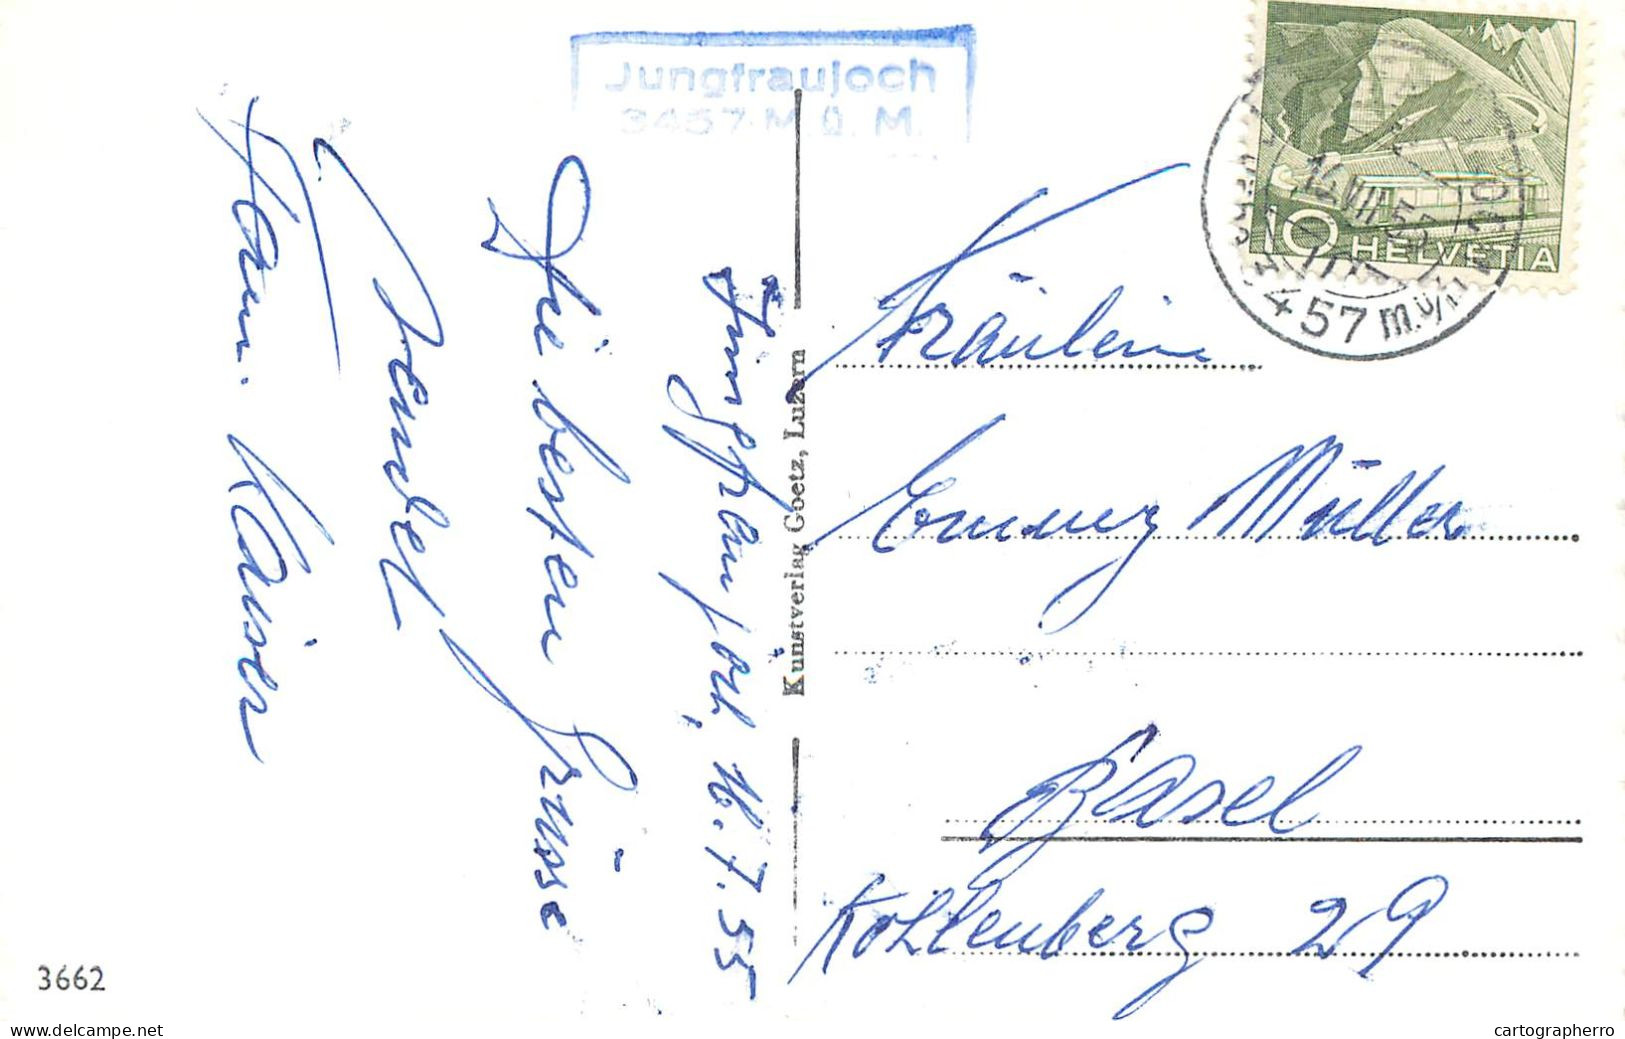 Jungfraujoch
3457 M. ü. M.
10 HELVETIA
16.VII.55
3457 m.ü.M.
Jungfraujoch, 16.7.55
Die besten Grüsse
sendet
Hani Kaiser
Kunstverlag Goetz, Luzern
Fräulein
Emmy Müller
Basel
Kohlenberg 29
3662
www.delcampe.net
cartographerro